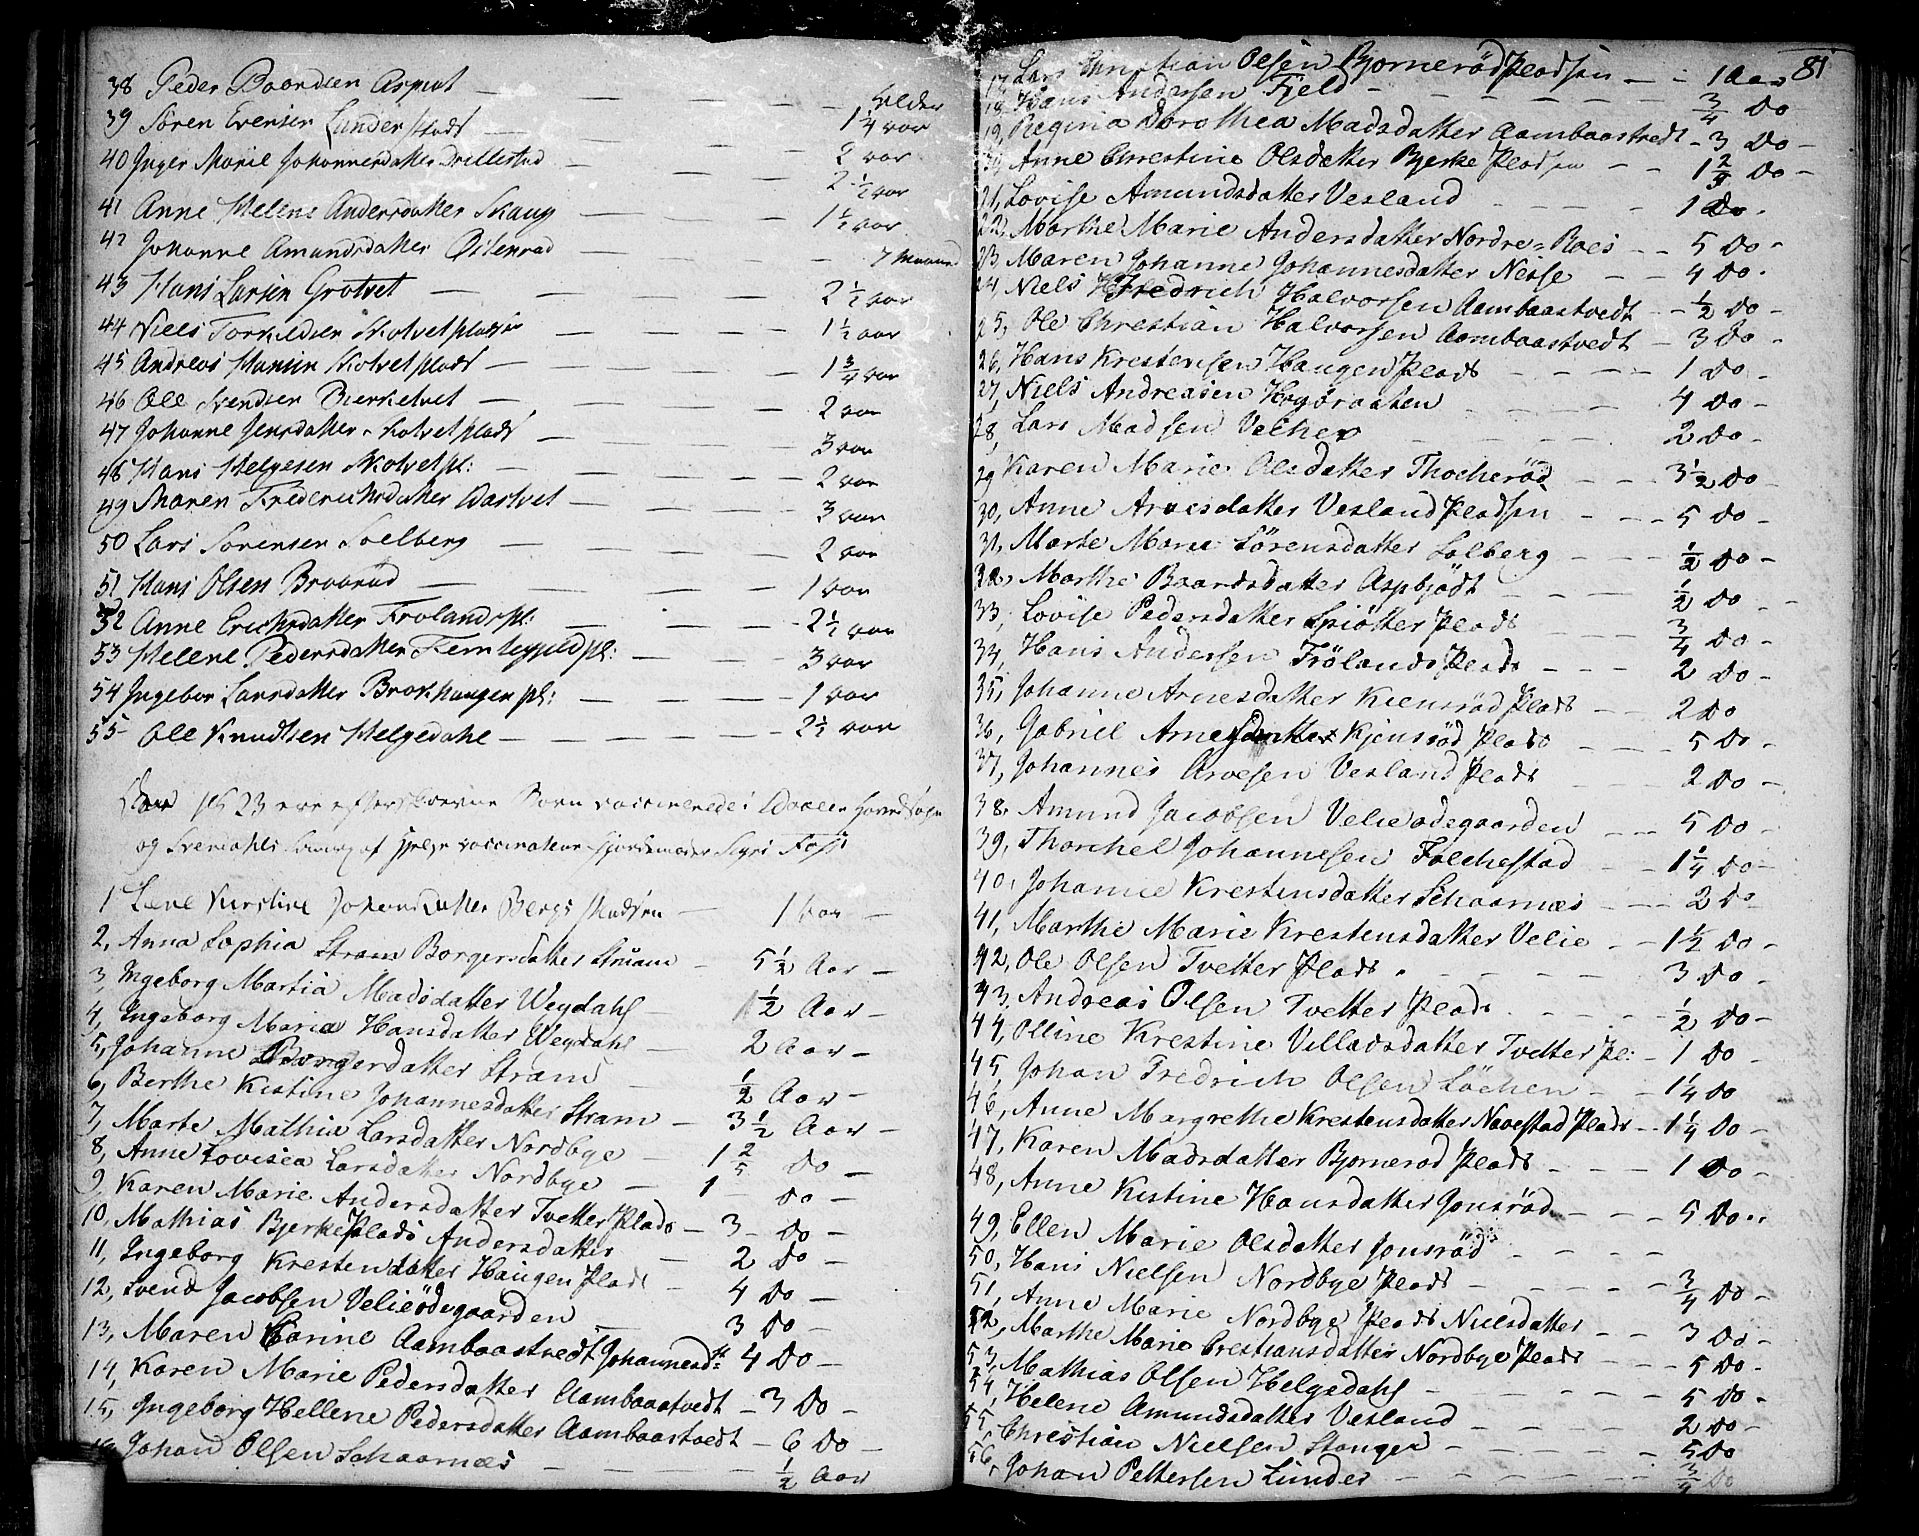 38 Peder Baardsen Asput — — — — Alder
39 Søren Evensen Lunder Plads — — — — 1 1/4 aar
40 Inger Marie Johannesdatter Drillestad — — — 2 aar
41 Anne Helene Andersdatter Skaug — — — 2 1/2 aar
42 Johanne Amundsdatter Østenrad — — — 1 1/2 aar
7 Maaned
43 Hans Larsen Grotvet — — — — 2 1/2 aar
44 Niels Torkildsen Skotvet pladsen — — — 1 1/2 aar
45 Andreas Hansen Skotvet plads — — — 1 3/4 aar
46 Ole Svendsen Bierketvet — — — — 2 aar
47 Johanne Jensdatter Skotvet plads — — — 3 aar
48 Hans Helgesen Skotvet pl: — — — 2 aar
49 Maren Frederichsdatter Dastvet — — — 3 aar
50 Lars Sørensen Solberg — — — — 2 aar
51 Hans Olsen Braarud — — — — 1 aar
52 Anne Erichsdatter Froland pl: — — — 2 1/2 aar
53 Helene Pedersdatter pl: — — — 3 aar
54 Ingebor Larsdatter Brokhaugen pl: — — — 1 aar
55 Ole Knudtsen Helgedahl — — — — 2 1/2 aar
23 ere efterskrevne Børn vaccinerede i Hovedsogn
og Svendahls af Hjelpe vaccinateur Gjordemoder Sigri Foss
1 Lene Kirstine Johansdatter Bergs Pladsen — 1 Aar —
2, Anna Sophia Stram Borgersdatter Stram — 5 1/2 Aar —
3, Ingeborg Martia Madsdatter Weydahl — 1 1/2 Aar —
4, Ingeborg Maria Hansdatter Weydahl — 2 Aar —
5, Johanne Borgersdatter Stram — 1/2 Aar —
6, Berthe Kistine Johannesdatter Stram — 3 1/2 Aar —
7, Marte Mathia Larsdatter Nordbye — 1 2/5 Do —
8, Anne Lovisea Larsdatter Nordbye — 1 Do —
9, Karen Marie Andersdatter Tvetter Plads — 3 Do —
10, Mathias Bjerke Plads Andersdatter — 2 Do —
11, Ingeborg Krestensdatter Haugen Plads — 4 Do —
12, Svend Jacobsen Velieødegaarden — 3 Do —
13, Maren Carine Aambaastvedt Johannesdtr 4 Do —
14, Karen Marie Pedersdatter Aambaastvedt — 3 Do —
15, Ingeborg Hellene Pedersdatter Aambaastvedt — 6 Do —
16, Johan Olsen Schaarnæs — — — — 1/2 Aar
81
17, Lars Christian Olsen Bjørnerød Pladsen — — 1 Aar
18, Hans Andersen Fjeld — — — — 3/4 Do
19, Regina Dorothea Madsdatter Aambaastvedt — 3 Do —
20, Anne Chrestine Olsdatter Bjerke Pladsen — — 1 2/3 Do —
21, Lovise Amundsdatter Vesland — — — 1 Do.
22, Marthe Marie Andersdatter Nordre=Roes — — 5 Do —
23, Maren Johanne Johannesdatter Nesse — — 4 Do.
24, Niels Fredrich Halvorsen Aambaastvedt — 1/2 Do —
25, Ole Chrestian Halvorsen Aambaastvedt — 3 Do —
26, Hans Krestensen Haugen Plads — — — 1 Do —
27, Niels Andreasen Høgøraaten — — — 4 Do —
28, Lars Madsen Velher — — — 2 Do —
29 Karen Marie Olsdatter Thocherød — — 3 1/2 Do —
30, Anne Arvesdatter Vesland Pladsen — — — 5 Do —
31, Marte Marie Sørensdatter Solberg — — — 1/2 Do —
32, Marthe Baardsdatter Aspbjødt — — — 1/2 Do — —
33, Lovise Pedersdatter Sriøtter Plads — — 3/4 Do —
34, Hans Andersen Frølands Plads — — — 2 Do —
35, Johanne Arnesdatter Kiensrød Plads — — 2 Do
36, Gabriel Arnesdatter Kjensrød Plads — — 5 Do —
37, Johannes Arvesen Vesland Plads — — — 2 Do —
38, Amund Jacobsen Velieødegaarden — — 5 Do —
39, Thorchel Johannesen Folchestad — — 1 1/4 Do —
40, Johanne Krestensdatter Schaarnæs — — — 2 Do
41, Marthe Marie Krestensdatter Velie — — 1 1/2 Do —
42, Ole Olsen Tvetter Plads. — — — 3 Do —
43, Andreas Olsen Tvetter Plads — — — 1/2 Do —
44, Olline Krestine Villadsdatter Tvetter Pl: — 1 Do —
45, Johan Fredrich Olsen Løchen — — 1 1/4 Do
46, Anne Margrethe Krestensdatter Navestad Plads — 1 1/4 Do —
47, Karen Madsdatter Bjørnerød Plads — — — 1 Do
48, Anne Kistine Hansdatter Jonsrød — — — 5 Do..
49, Ellen Marie Olsdatter Jonsrød — — —
50, Hans Nielsen Nordbye Plads — — — 3/4 Do —
51, Anne Marie Nordbye Plads Nielsdatter — — 3 Do —
52, Marthe Marie Crestiansdatter Nordbye Plads — — — 5 Do —
53, Mathias Olsen Helgedahl — — — 5 Do —
54, Helene Amundsdatter Vesland — — — 2 Do —
55, Christian Nielsen Stanger — — — 5 Do
56, Johan Pettersen Lunder — — — 3/4 Do